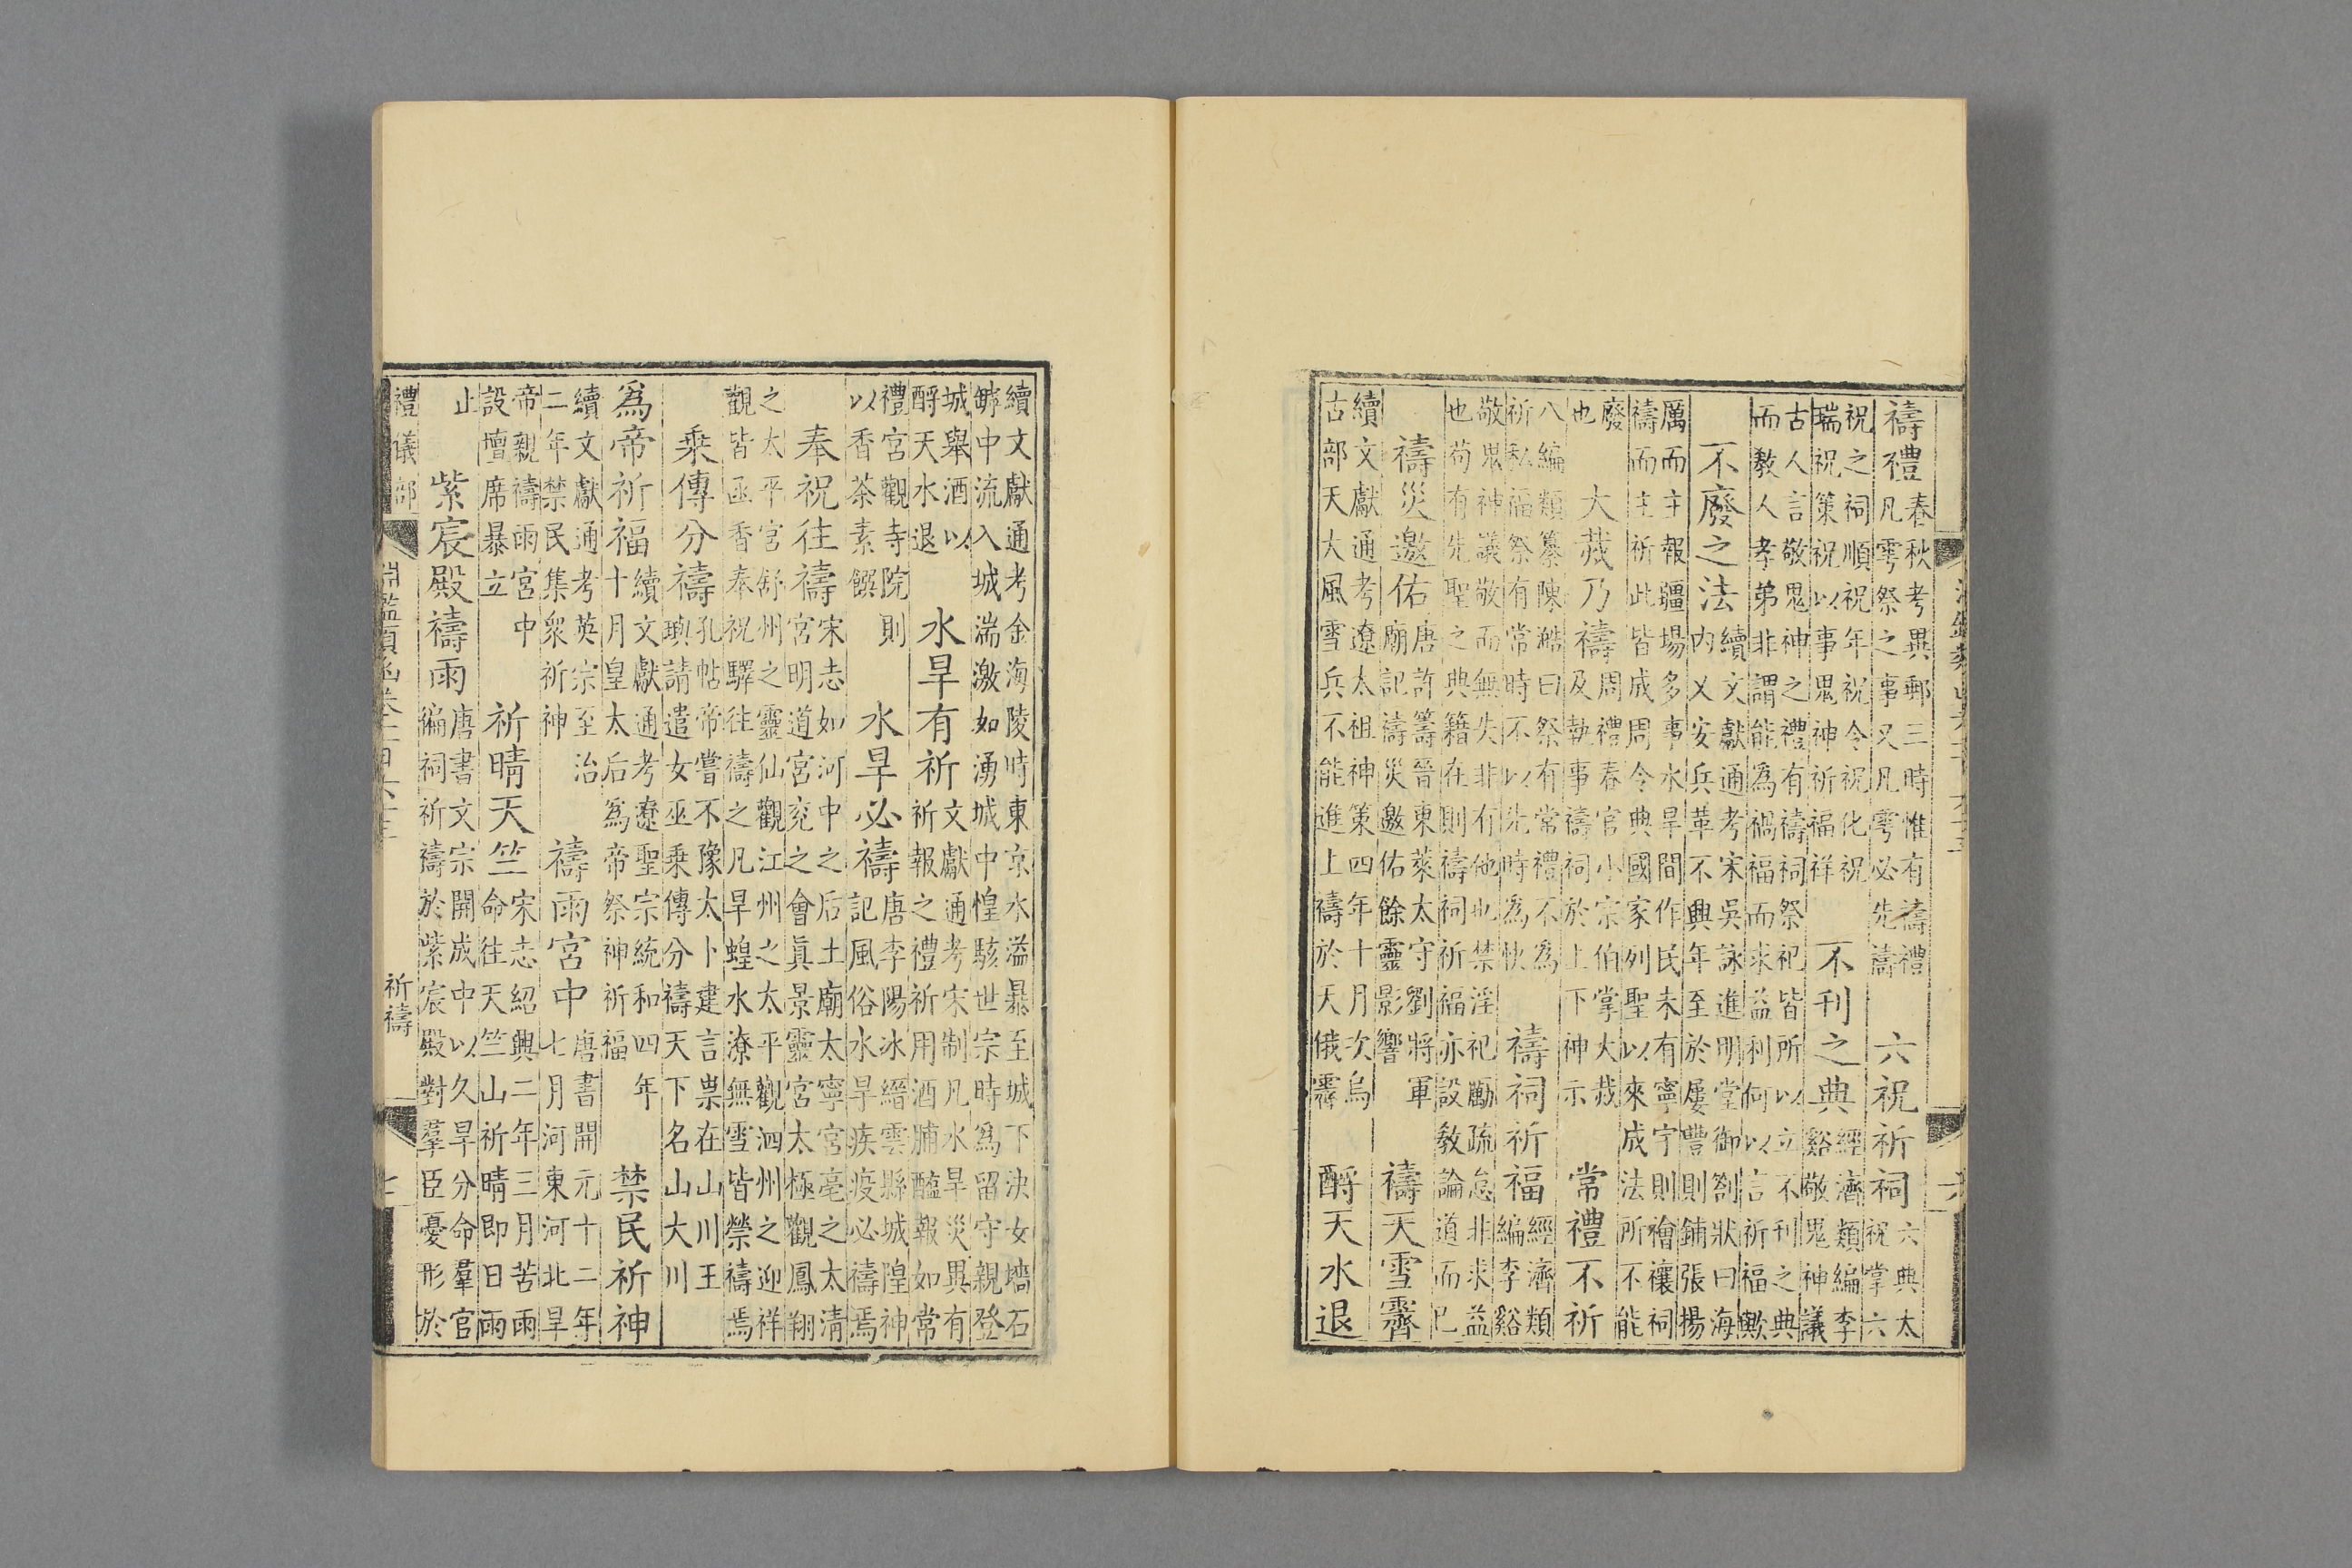 禱禮
春秋考異郵三時惟有禱禮
凡雩祭之事又凡雩必先禱
六祝祈祠
六典太
祝掌六
祝之祠順祝年祝令祝化祝
瑞祝策祝以事鬼神祈福祥
不刊之典
經濟類編李
谿敬鬼神議
古人言敬鬼神之禮有禱祠祭祀皆所以立不刊之典
而教人孝弟非謂能為禍福而求益利何以言祈福歟
不廢之法
續文獻通考宋吳詠進明堂御劄狀曰海
內乂安兵革不興年至於屢豐則鋪張揚
厲而主報疆場多事水旱間作民未有寧宇則禬禳祠
禱而主祈此皆成周令典國家列聖以來成法所不能
廢
也
大烖乃禱
周禮春官小宗伯掌大烖
及執事禱祠於上下神示
常禮不祈
八編類纂陳澔曰祭有常禮不為
祈私福祭有常時不以先時為快
禱祠祈福
經濟類
編李谿
敬鬼神議敬而無失非有他也禁淫祀勵疏怠非求益
也苟有先聖之典籍在則禱祠祈福亦設教論道而已
禱災邀佑
唐許籌晉東萊太守劉將軍
廟記禱災邀佑餘靈影響
禱天雪霽
續文獻通考遼太祖神策四年十月次烏
古部天大風雪兵不能進上禱於天俄霽
酹天水退
續文獻通考金海陵時東京水溢暴至城下決女墻石
罅中流入城湍激如湧城中惶駭世宗時為留守親登
城舉酒以
酹天水退
水旱有祈
文獻通考宋制凡水旱災異有
祈報之禮祈用酒脯醢報如常
禮宮觀寺院則
以香茶素饌
水旱必禱
唐李陽冰縉雲縣城隍神
記風俗水旱疾疫必禱焉
奉祝往禱
宋志如河中之后土廟太寧宮亳之太清
宮明道宮兗之會真景靈宮太極觀鳳翔
之太平宮舒州之靈仙觀江州之太平觀泗州之迎祥
觀皆函香奉祝驛往禱之凡旱蝗水潦無雪皆禜禱焉
乘傳分禱
孔帖帝嘗不豫太卜建言祟在山川王
璵請遣女巫乘傳分禱天下名山大川
為帝祈福
續文獻通考遼聖宗統和四年
十月皇太后為帝祭神祈福
禁民祈神
續文獻通考英宗至治
二年禁民集衆祈神
禱雨宮中
唐書開元十二年
七月河東河北旱
帝親禱雨宮中
設壇席暴立
祈晴天竺
宋志紹興二年三月苦雨
命往天竺山祈晴即日雨
止
紫宸殿禱雨
唐書文宗開成中以久旱分命羣官
編祠祈禱於紫宸殿對羣臣憂形於
禮儀部
祈禱